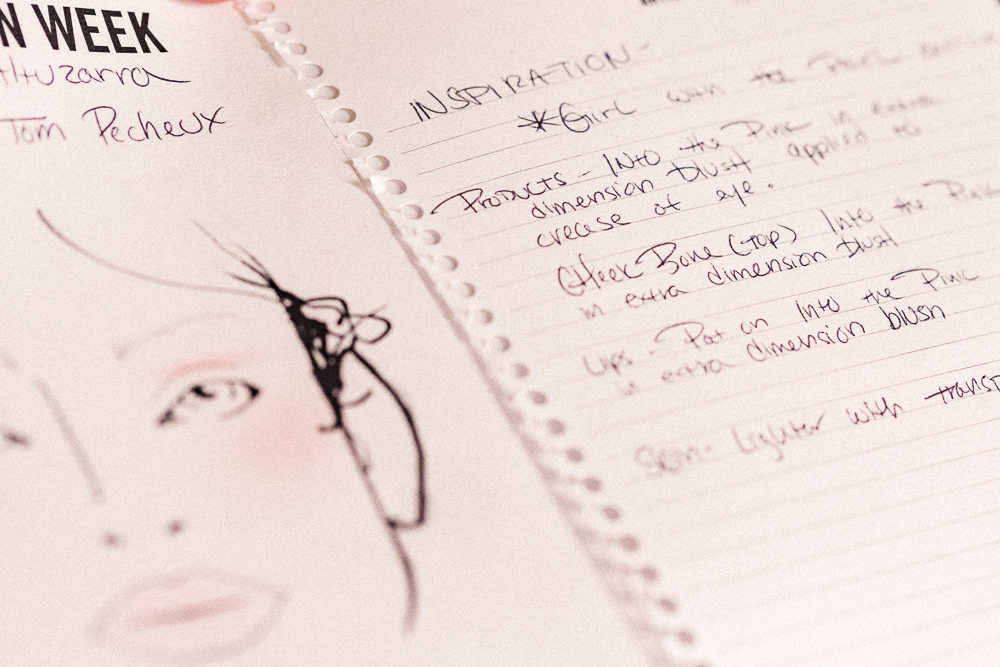 N WEEK
Altuzarra
Tom Pecheux
INSPIRATION-
*Girl with the Pearl
PRODUCTS - INto the Pink in extra
dimension blush applied to
crease of eye.
CHeek Bone (TOP) Into the Pink
in extra dimension blush
Lips - Pat on Into the Pink
in extra dimension blush
Skin- Lighter with